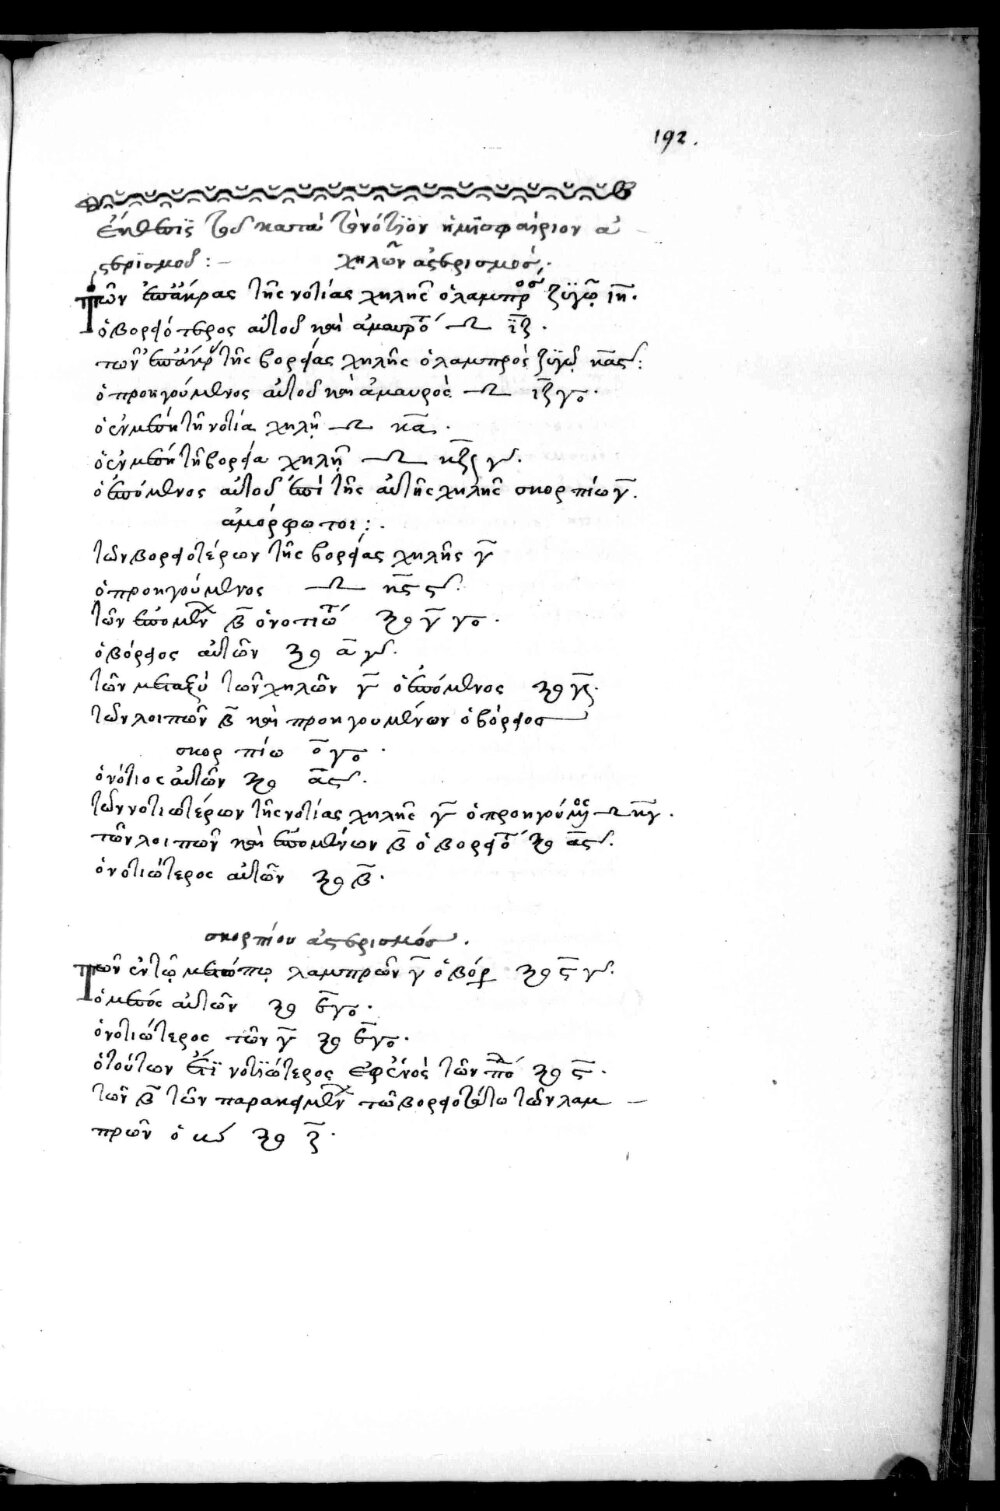 192.
ἔκθεσις τοῦ κατὰ τὸ νότϊον ἡμϊσφαίριον ἀ
στερϊσμοῦ :–
χηλῶν ἀστερισμός.
Τῶν ἐπ' ἄκρας τῆς νοτίας χηλῆς ὁ λαμπρὸς ζϋγῶ ιη.
ὁ βορφότερος αὐτοῦ καὶ ἀμαυρό ♎ ιζ.
τῶν ἐπ' ἄκρ τῆς βορφας χηλῆς ὁ λαμπρὸς ζϋγῶ κας:
ὁ προηγούμενος αὐτοῦ καὶ ἀμαυρὸς ♎ ιζ γο.
ὁ ἐν μέση τῆ νοτία χηλῆ ♎ κα.
ὁ ἐν μέση τῆ βορφα χηλῆ ♎ κζ γ.
ὁ ἑπόμενος αὐτοῦ ἐπὶ τῆς αὐτῆς χηλῆς σκορπίω γ.
ἀμόρφωτοι :.
τῶν βορφοτέρων τῆς βορφας χηλῆς γ
ὁ προηγούμενος ♎ κς ς.
τῶν ἑπομέν β ὁ νοτιώτ ♏ γ γο.
ὁ βόρφος αὐτῶν ♏ α γ.
τῶν μεταξὺ τῶν χηλῶν γ ὁ ἑπόμενος ♏ γς.
τῶν λοιπῶν β καὶ προηγουμένων ὁ βόρφος
σκορπίω ο γο.
ὁ νότιος αὐτῶν ♏ ας.
τῶν νοτιωτέρων τῆς νοτίας χηλῆς γ ὁ προηγούμος ♎ κγ.
τῶν λοιπῶν καὶ ἑπομένων β ὁ βορφό ♏ ας.
ὁ νοτιώτερος αὐτῶν ♏ β.
σκορπίου ἀστερισμός.
Τῶν ἐν τῷ μετώπῳ λαμπρῶν γ ὁ βόρ ♏ ς γ.
ὁ μέσος αὐτῶν ♏ ε γο.
ὁ νοτιώτερος τῶν γ ♏ ε γο.
ὁ τούτων ἔτϊ νοτϊώτερος ἐφ' ἑνὸς τῶν πο ♏ ς.
τῶν β τῶν παρακμέν τῶ βορφοτάτω τῶν λαμ –
πρῶν ὁ ♏ ζ.